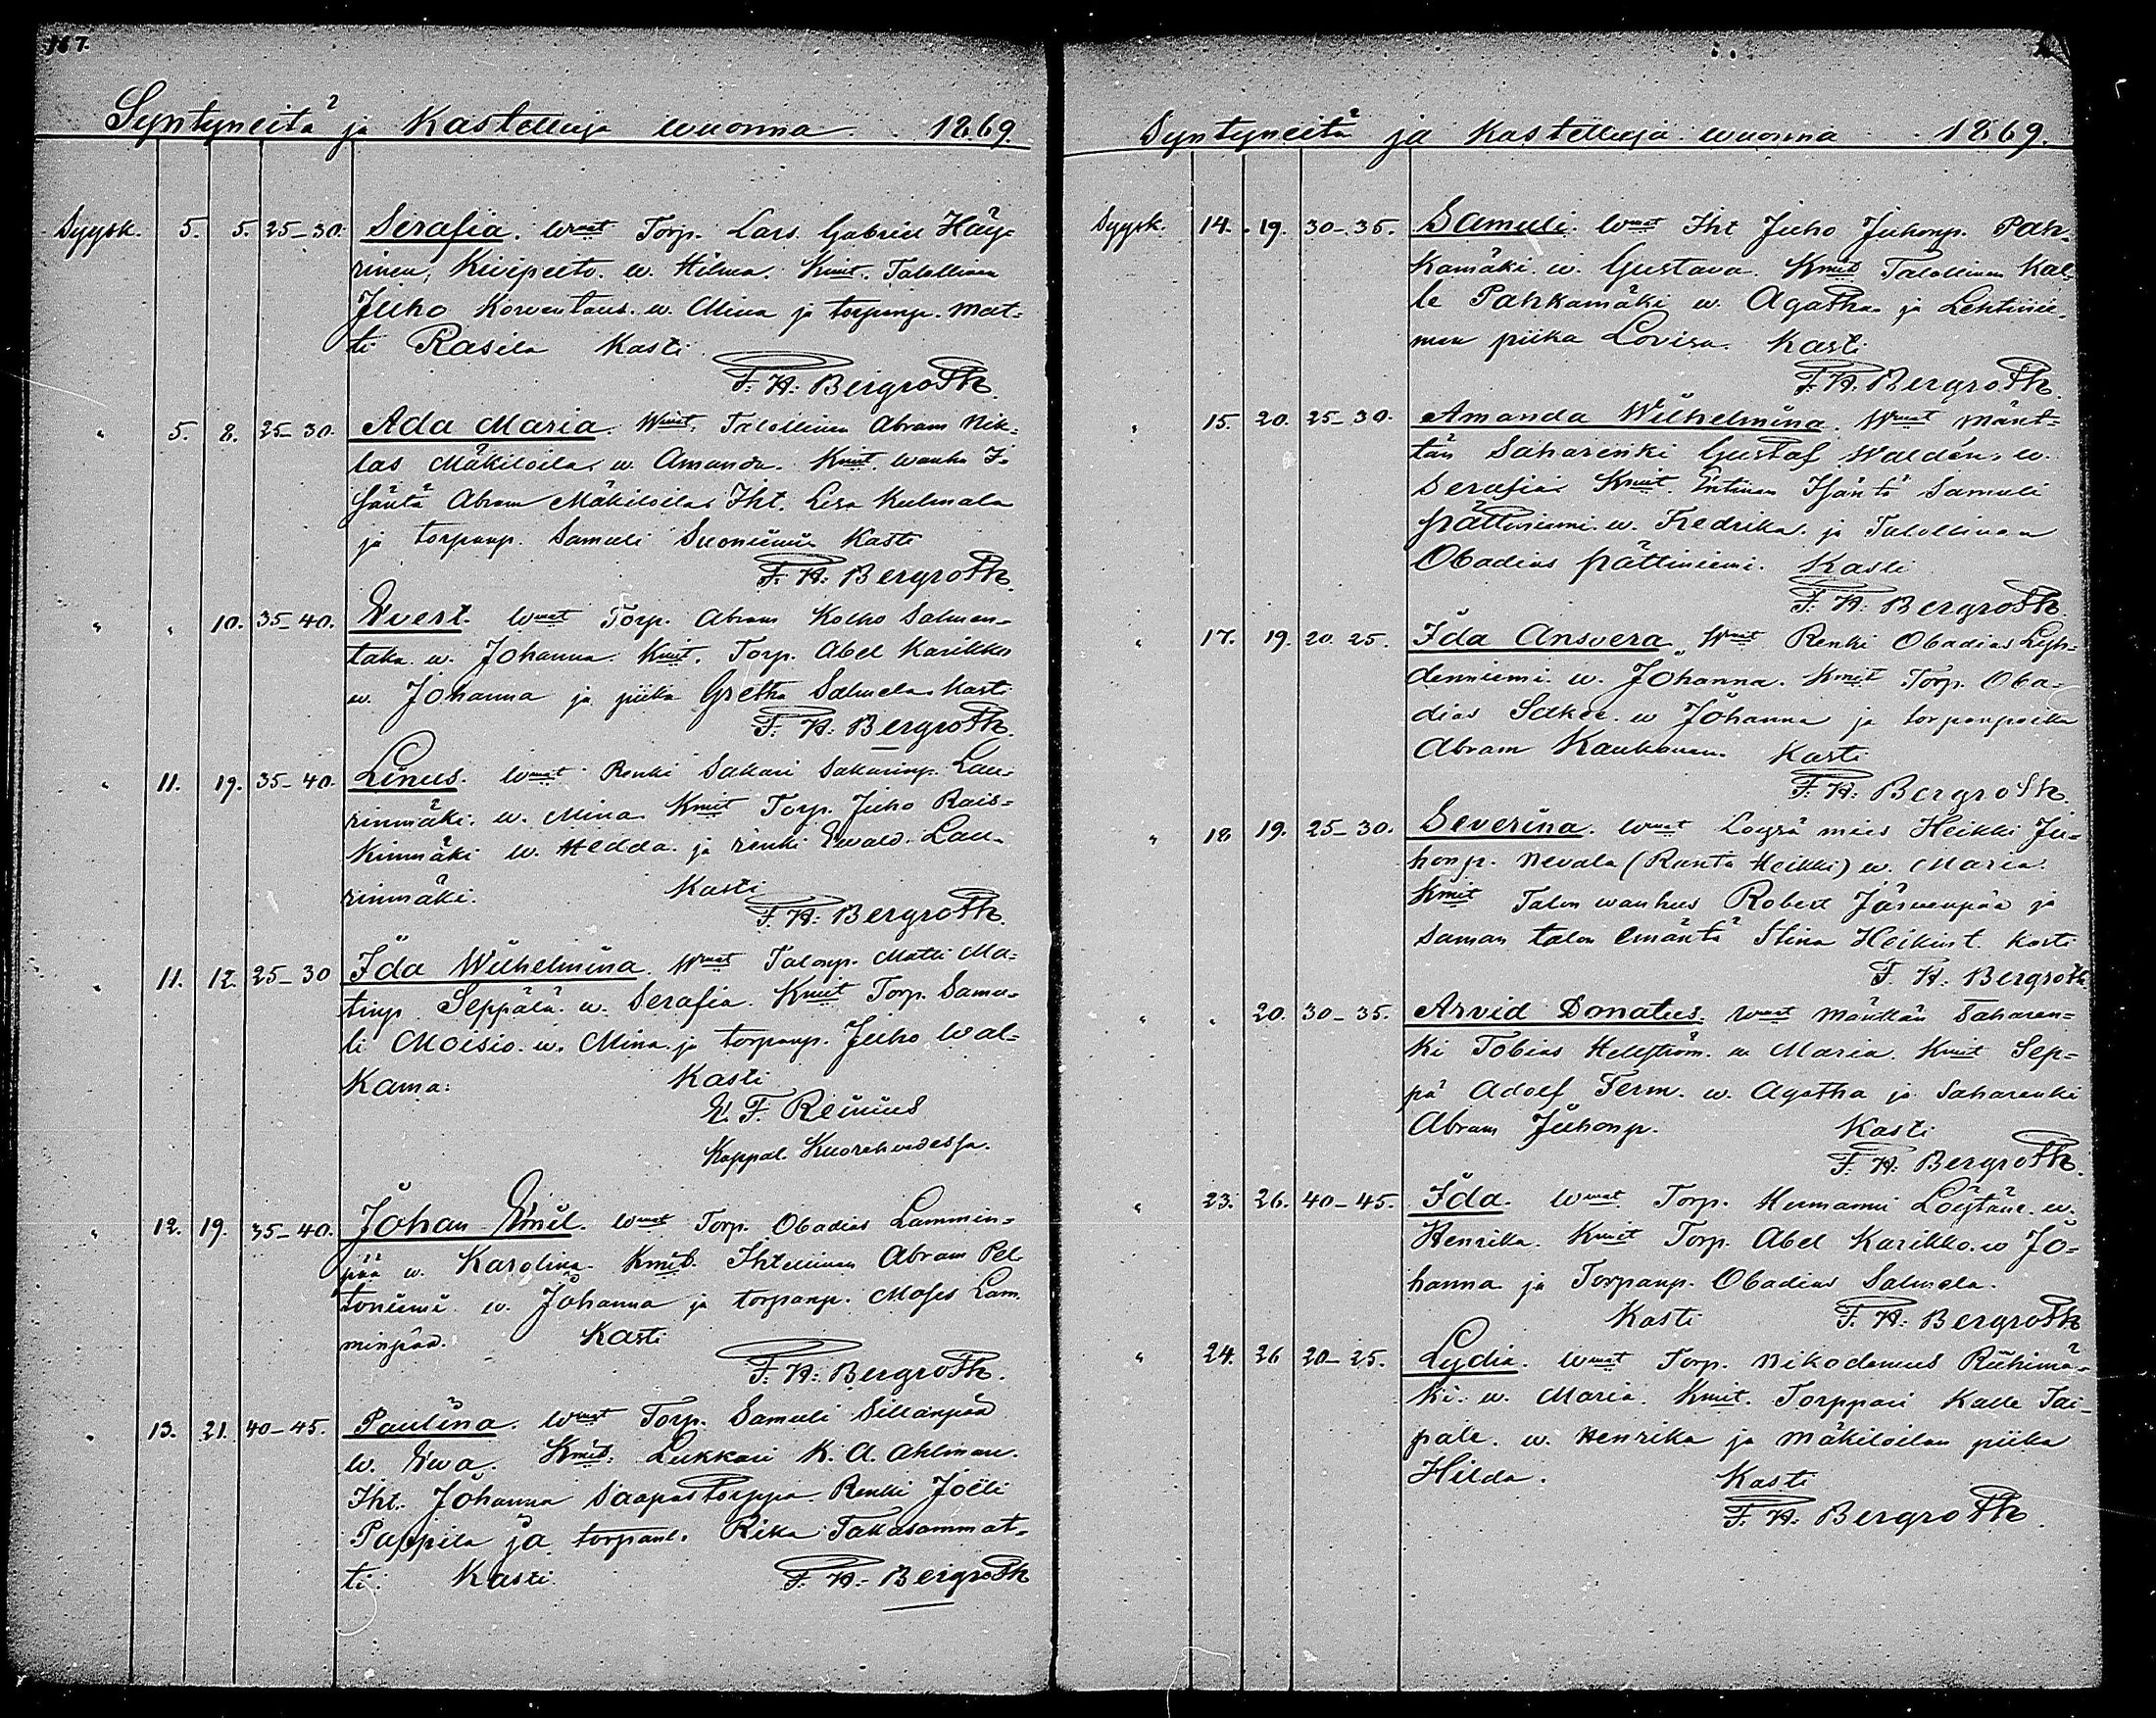 167.
Syntyneitä ja Kastettuja wuonna 1869.
Syysk. 5. 5. 25-30. Serafia. Wmat Torp. Lars Gabriel Häy=
rinen, Kivipelto. w. Hilma. Kmit. Talollinen
Juho Korventaus. w. Mina ja torpanp. Mat=
ti Rasila Kasti
F. H. Bergroth.
" 5. 8. 25-30. Ada Maria. Wmat. Talollinen Abram Nik=
las Mäkiloila. w. Amanda. Kmit. wanha I=
säntä Abram Mäkiloila. Iht. Lisa Kulmala
ja torpanp. Samuli Suoniemi Kasti
F. H. Bergroth.
" " 10. 35-40. Evert. Wmat Torp. Abram Kolho Salmen=
taka. w. Johanna. Kmit. Torp. Abel Karikko
w. Johanna ja piika Gretha Salmela. Kasti
F. H. Bergroth.
" 11. 19. 35-40. Linus. Wmat Renki Sakari Sakarinp. Lau=
rinmäki. w. Mina. Kmit Torp. Juho Rais=
kinmäki w. Hedda. ja renki Ewald Lau=
rinmäki. Kasti
F. H. Bergroth.
" 11. 12. 25-30 Ida Wilhelmina. Wmat Talonp. Matti Ma=
tinp. Seppälä. w. Serafia. Kmit Torp. Samu=
li Moisio. w. Mina. ja torpanp. Juho Wal=
kama. Kasti
E. F. Reinius
Kappal. Kuorehwedessa.
" 12. 19. 35-40. Johan Emil. Wmat Torp. Obadias Lammin=
pää w. Karolina. Kmit. Ihtellinen Abram Pel
toniemi. w. Johanna ja torpanp. Moses Lam
minpää. Kasti
F. H. Bergroth.
" 13. 21. 40-45. Paulina. Wmat Torp. Samuli Sillanpää
w. Ewa. Kmit. Lukkari K. A. Ahlman.
Iht. Johanna Saapastorppa. Renki Joëli
Pappila ja torpant. Rika Takasammat=
ti. Kasti. F. H. Bergroth
Syntyneitä ja Kastettuja wuonna 1869.
Syysk. 14. 19. 30-35. Samuli. Wmat Iht Juho Juhonp. Pah=
kamäki. w. Gustava. Kmit Talollinen Kal=
le Pahkamäki w. Agatha ja Lehtinie=
men piika Lovisa. Kasti
F. H. Bergroth.
" 15. 20. 25-30. Amanda Wilhelmina. Wmat Mänt=
tän Saharenki Gustaf Waldén. w.
Serafia. Kmit. Entinen Isäntä Samuli
Prättiniemi. w. Fredrika. ja Talollinen
Obadias Prättiniemi. Kasti
F. H. Bergroth.
" 17. 19. 20-25. Ida Ansvera. Wmat Renki Obadias Lyh=
denniemi. w. Johanna. Kmit Torp. Oba=
dias Sakee. w Johanna ja torpanpoika
Abram Kauhanen. Kasti
F. H. Bergroth.
" 18 19. 25-30. Severina. Wmat Loysä mies Heikki Ju=
honp. Nevala (Ranta Heikki) w. Maria.
Kmit Talon wanhus Robert Järvenpää ja
Saman talon emäntä Stina Heikint. Kasti
F. H. Bergroth
" " 20. 30-35. Arvid Donatus. Wmat Mänttän Saharen=
ki Tobias Hellström. w. Maria. Kmit Sep=
pä Adolf Ferm. w. Agatha ja Saharenki
Abram Juhonp. Kasti
F. H. Bergroth.
" 23. 26. 40-45. Ida. Wmat Torp. Hermanni Löytäne. w.
Henrika. Kmit Torp. Abel Karikko. w Jo=
hanna ja Torpanp. Obadias Salmela.
Kasti F. H. Bergroth
" 24. 26 20-25. Lydia. Wmat Torp. Nikodemus Riihimä=
ki. w. Maria. Kmit. Torppari Kalle Tai=
pale. w. Henrika ja Mäkiloilan piika
Hilda. Kasti
F. H. Bergroth.